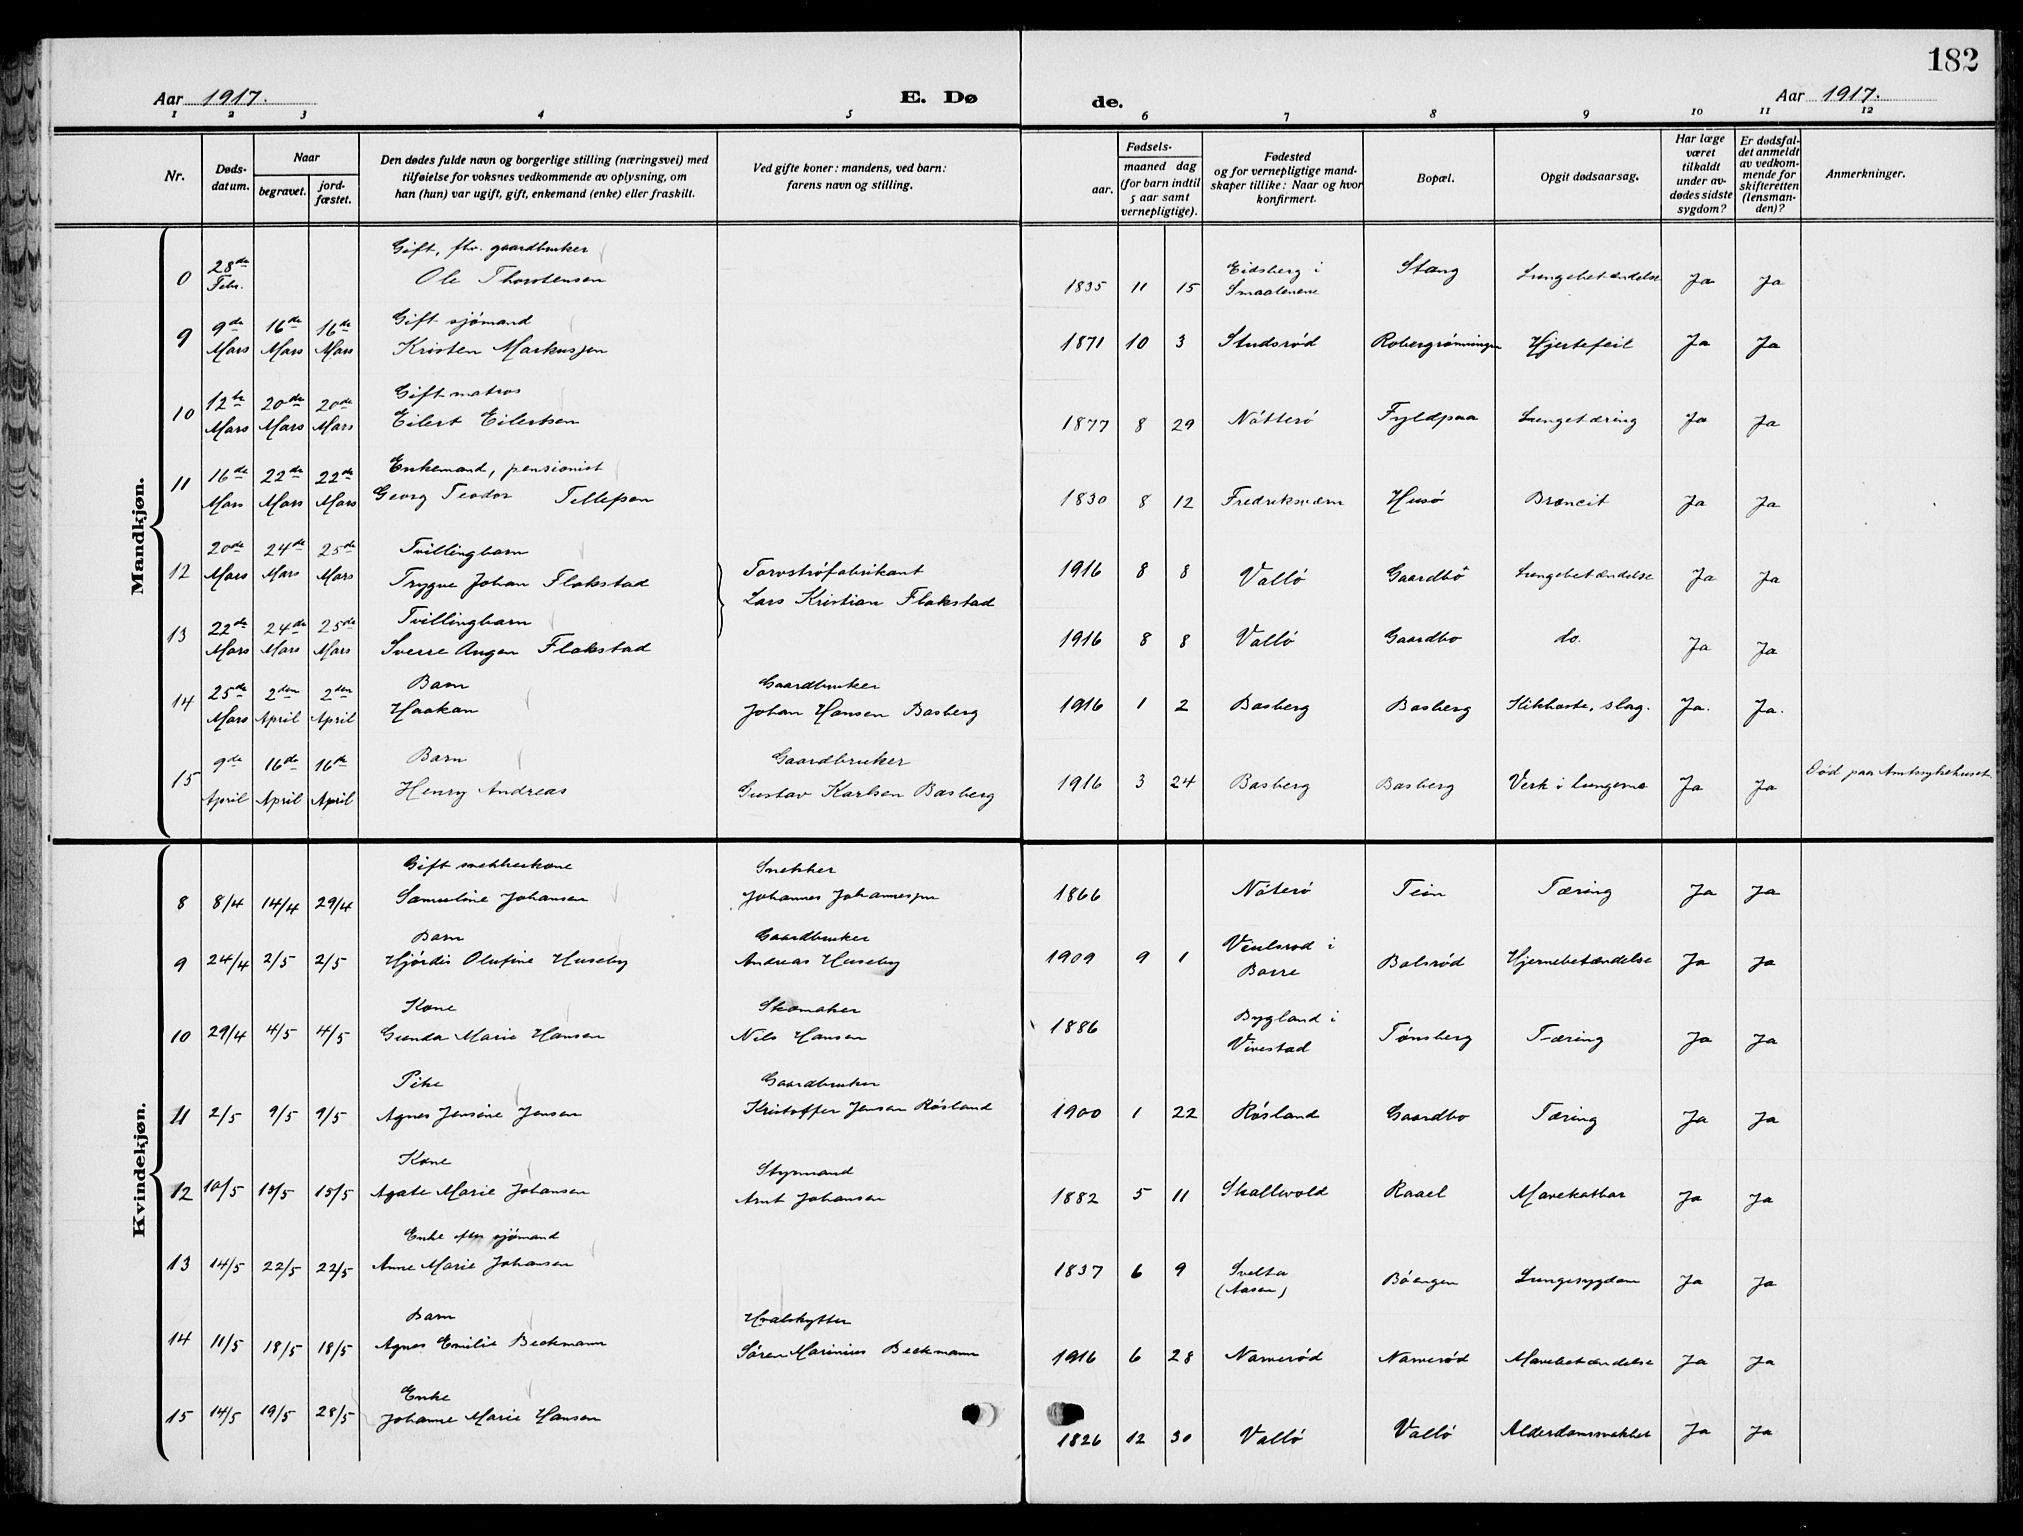 182
Aar 1917. E. Dø de. Aar 1917.
1 2 3 4 5 6 7 8 9 10 11 12
Nr.
Døds-
datum.
Naar
begravet.
jord-
fæstet.
Den dødes fulde navn og borgerlige stilling (næringsvei) med
tilføielse for voksnes vedkommende av oplysning, om
han (hun) var ugift, gift, enkemand (enke) eller fraskilt.
Ved gifte koner: mandens, ved barn:
farens navn og stilling.
Fødsels-
aar.
maaned dag
(for barn indtil
5 aar samt
vernepligtige).
Fødested
og for vernepligtige mand-
skaper tillike: Naar og hvor
konfirmert.
Bopæl.
Opgit dødsaarsag.
Har læge
været
tilkaldt
under av-
dødes sidste
sygdom?
Er dødsfal-
det anmeldt
av vedkom-
mende for
skifteretten
(lensman-
den)?
Anmerkninger.
Mandkjøn.
0 28de Febr. Gift, fhv. gaardbruker
Ole Thorstensen 1835 11 15 Eidsberg i
Smaalenene Stang Lungebetændelse Ja Ja
9 9de Mars 16de Mars 16de Mars Gift sjømand
Kristen Markussen 1871 10 3 Studsrød Robergrønningen Hjertefeil Ja Ja
10 12te Mars 20de Mars 20de Mars Gift matros
Eilert Eilertsen 1877 8 29 Nøtterø Fyldpaa Lungetæring Ja Ja
11 16de Mars 22de Mars 22de Mars Enkemand, pensionist
Georg Teodor Tellefsen 1830 8 12 Fredriksværn Husø Broncit Ja Ja
12 20de Mars 24de Mars 25de Mars Tvillingbarn
Trygve Johan Flakstad Torvstrøfabrikant
Lars Kristian Flakstad 1916 8 8 Vallø Gaardbo Lungebetændelse Ja Ja
13 22de Mars 24de Mars 25de Mars Tvillingbarn
Sverre Flakstad 1916 8 8 Vallø Gaardbo do. Ja Ja
14 25de Mars 2den April 2den April Barn
Haakan Gaardbruker
Johan Hansen Basberg 1916 1 2 Basberg Basberg Kikhoste, slag. Ja. Ja.
15 9de April 16de April 16de April Barn
Henry Andreas Gaardbruker
Gustav Karlsen Basberg 1916 3 24 Basberg Basberg Verk i lungerne Ja Ja Død paa Amtssykehuset
Kvindekjøn.
8 8/4 14/4 29/4 Gift snekkerkone
Samueline Johansen Snekker
Johannes Johannessen 1866 Nøterø Teien Tæring Ja Ja
9 24/4 2/5 2/5 Barn
Hjørdis Olufine Huseby Gaardbruker
Andreas Huseby 1909 9 1 i
Borre Bolsrød Hjernebetændelse Ja Ja
10 29/4 4/5 4/5 Kone
Gunda Marie Hansen Skomaker
Nils Hansen 1886 Bygland i
Vivestad Tønsberg Tæring Ja Ja
11 2/5 9/5 9/5 Pike
Agnes Jensine Jensen Gaardbruker
Kristoffer Jensen Røsland 1900 1 22 Røsland Gaardbo Tæring Ja Ja
12 10/5 15/5 15/5 Kone
Agate Marie Johansen Styrmand
Arnt Johansen 1882 5 11 Skallevold Raael Mavekathar Ja Ja
13 14/5 22/5 22/5 Enke efter sjømand
Anne Marie Johansen 1837 6 9 Svelta
(Aasen) Bøengen Lungesygdom Ja Ja
14 11/5 18/5 18/5 Barn
Agnes Emilie Beckmann Hvalskytter
Søren Marinius Beckmann 1916 6 28 Narverød Narverød Mavebetændelse Ja Ja
15 14/5 19/5 28/5 Enke
Johanne Marie Hansen 1826 12 30 Vallø Vallø Alderdomssvakhet Ja Ja